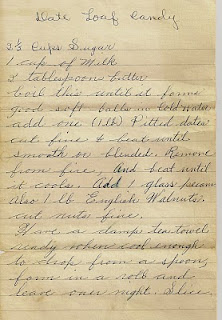 Date Loaf Candy
Cups Sugar
1 cup of Milk
3 tablespoon butter
boil this until it forms
good soft balls in cold water
add one (1 lb) Pitted dates
cut fine & beat until
smooth or blended. Remove
from fire. And beat until
it cools. Add 1 glass pecans
Also 1 lb English Walnuts.
cut nuts fine.
Have a damp tea towel
ready when cool enough
to drop from a spoon,
form in a roll and
leave over night. Slice.